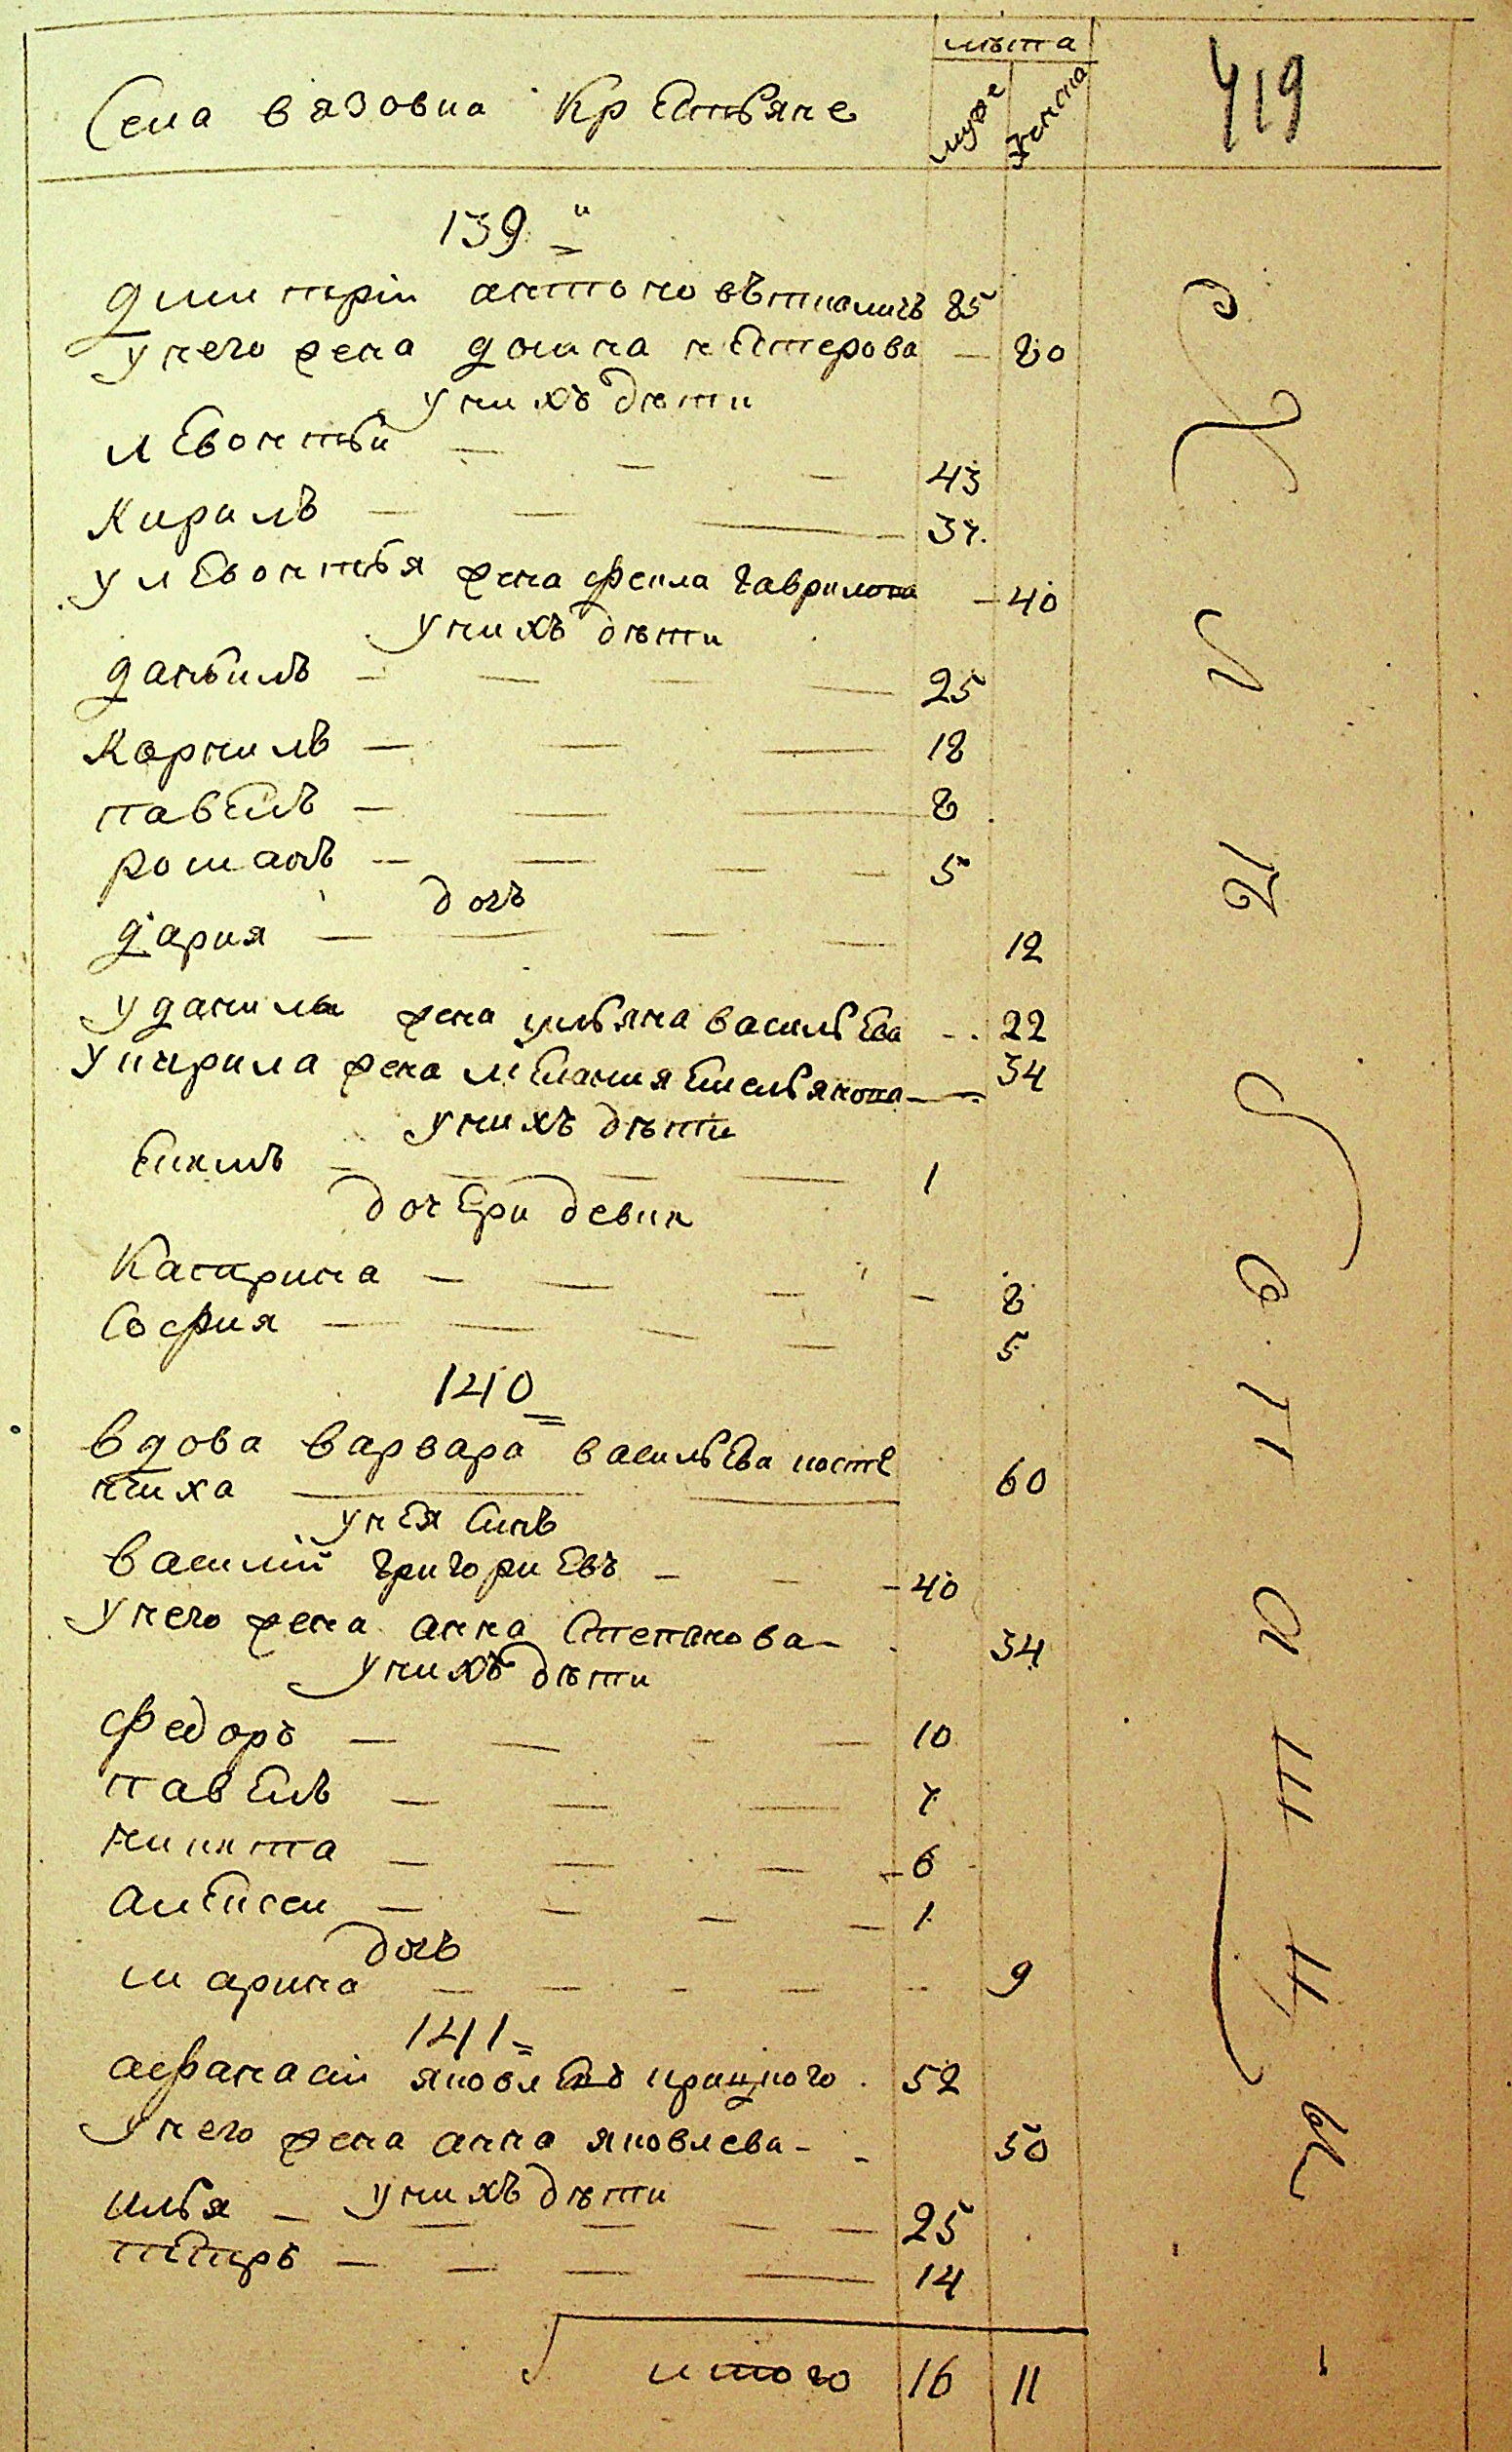 лѣта
Села вязовка Крестьяне
муже
женска
419
139 й
дмитрій антоновъ 85
у него жена домна нестерова — 80
у них дѣти
левонтьи — — — 43
Кирилъ — — — 37.
у левонтья жена фекла гаврилова — 40
у нихъ дѣти
даньилъ — — — — 25
Корнилъ — — — 18
павелъ — — — 8
романъ — — — — 5
дочь
дария — — — — 12
у данилы жена ульяна васильева - . 22
у кирила жена мелания емельянова — 34
у нихъ дѣти
Екимъ — — — — 1
дочери девки
Катерина — — — — 8
София — — — — 5
140
вдова варвара васильева косте
нчиха — — 60
у нея Синъ
василий григориевъ — — — 40
у него жена анна Степанова — 34
у нихъ дѣти
федоръ — — — — 10
павелъ — — — 7
никита — — — — 6
алексеи — — — — 1
дочь
марина — — — — 9
141
афанасий яковлевъ 52
у него жена анна яковлева - - 50
у нихъ дѣти
илья — — — — — 25
петръ — — — — 14
итого 16 11